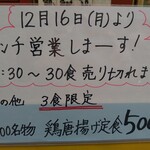 12月16日(月)より
ンチ営業しまーす!
:30～30食売り切れま
の他 3食限定
00名物 鶏唐揚げ定食500